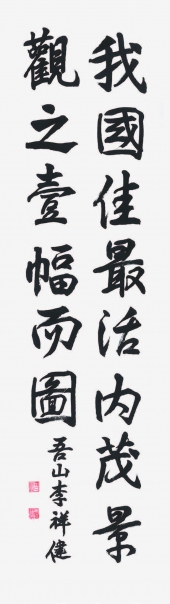 我國佳最活內茂景
觀之壹幅而圖
吾山李祥健